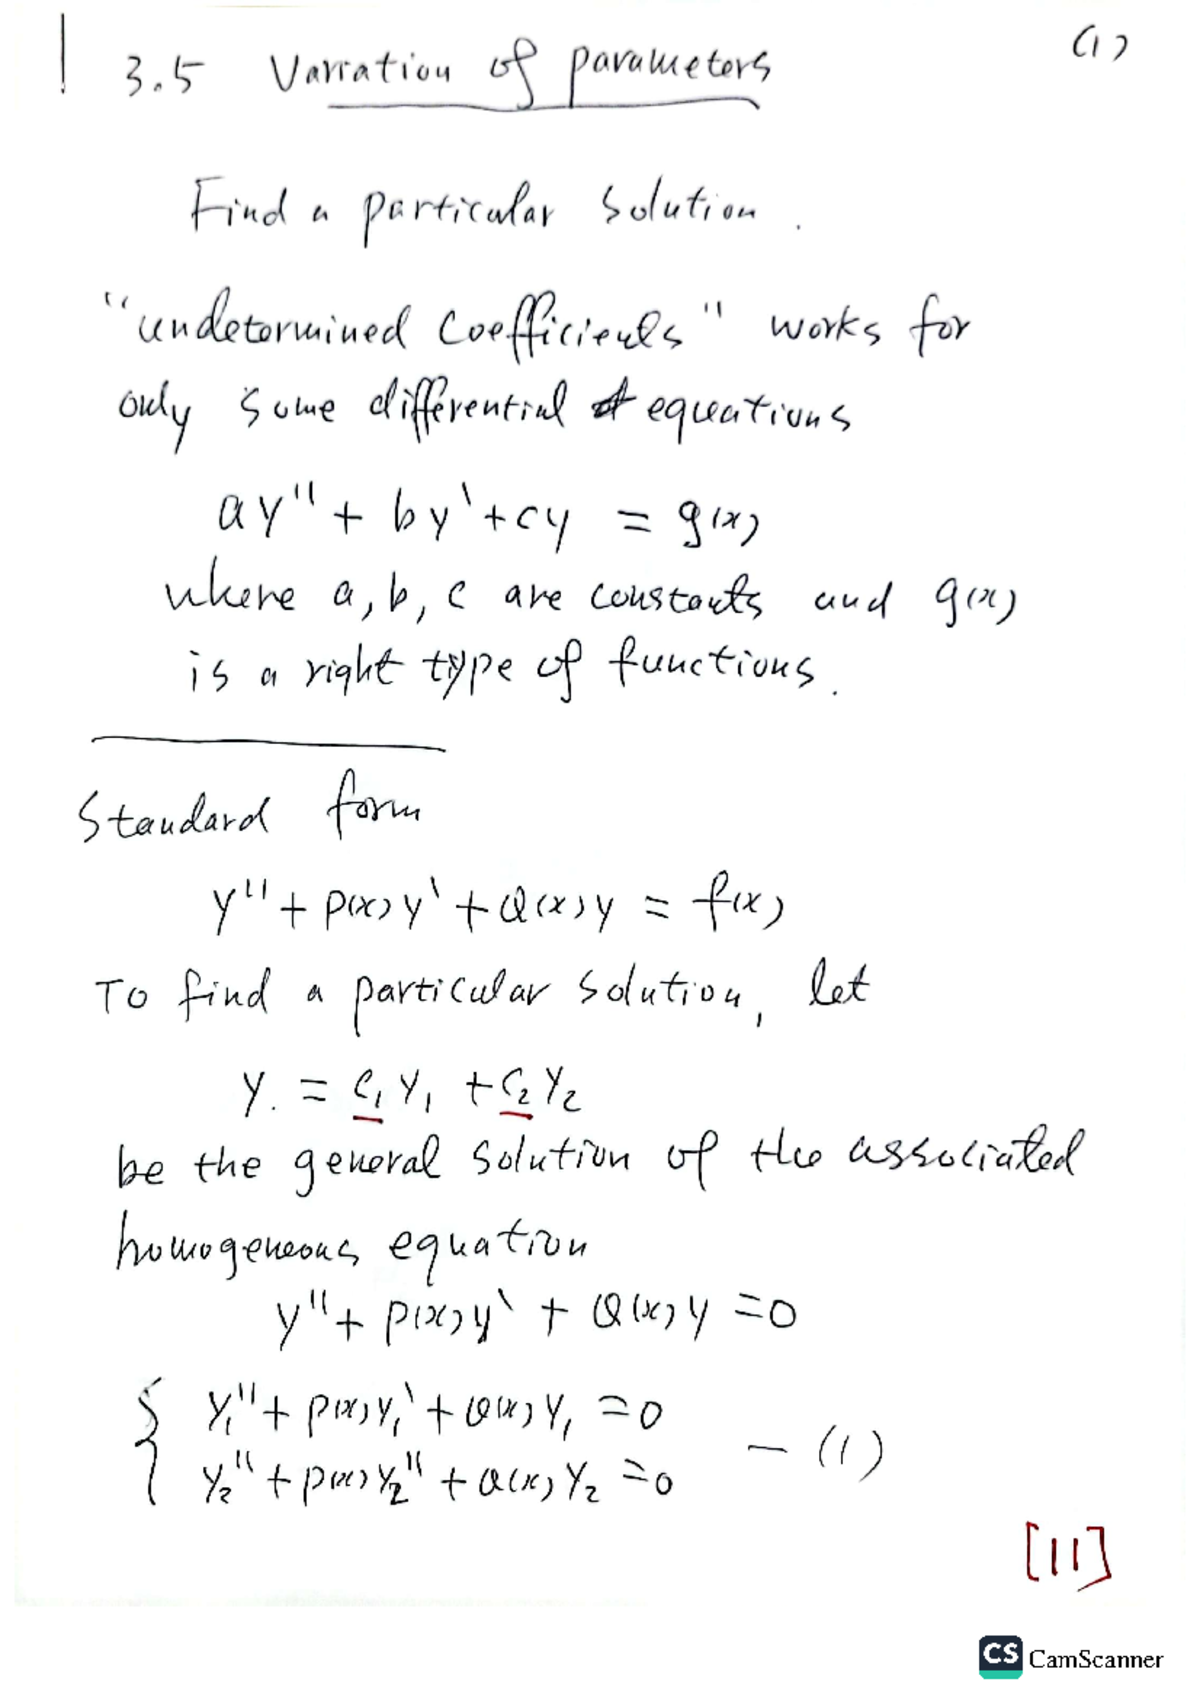 (1)
3.5 Variation of parameters
Find a particular solution.
"undetermined coefficients" works for
only some differential equations
ay'' + by' + cy = g(x)
where a, b, c are constants and g(x)
is a right type of functions.
Standard form
y'' + P(x)y' + Q(x)y = f(x)
To find a particular solution, let
y. = c₁y₁ + c₂y₂
be the general solution of the associated
homogeneous equation
y'' + P(x)y' + Q(x)y = 0
{ y₁'' + P(x)y₁' + Q(x)y₁ = 0
y₂'' + P(x)y₂'' + Q(x)y₂ = 0 — (1)
[11]
CS CamScanner